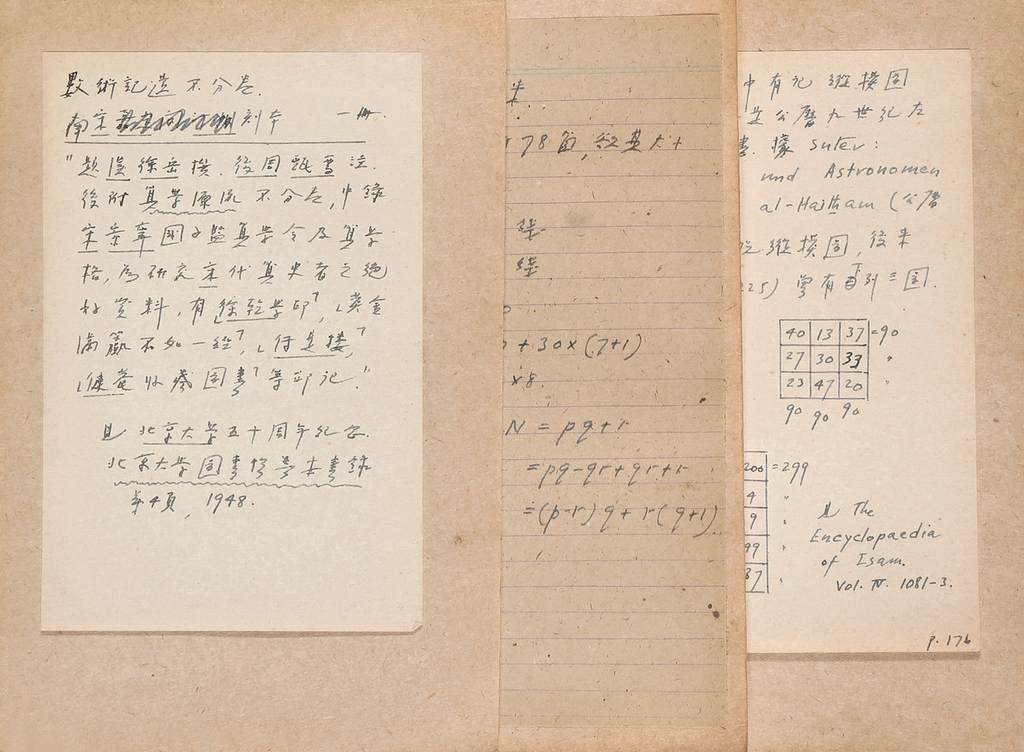 數術記遺 不分卷.
南宋 刻本 一冊.
"題漢徐岳撰. 後周甄鸞注.
後附算學源流不分卷, 中錄
宋崇寧國子監算學令及算學
格, 為研究宋代算史者之絕
好資料, 有「徐乾學印」, 「黃金
滿籯不如一經」, 「傳是樓」,
「傳菴收藏圖書」等印記."
見北京大學五十周年紀念
北京大學圖書館善本書錄
第4頁, 1948.
78
+30×(7+1)
×8.
N = pq+r
=pq-qr+qr+r
=(p-r)q+r(q+1)
中有記縱橫图
公曆九世紀左
據 Suter:
und Astronomen
al-Haitham (公曆
縱橫图, 後来
225) 曾有百列三图.
40 13 37 =90
27 30 33 "
23 47 20 "
90 90 90
200 =299
4 "
9 "
99 "
37 "
見 The
Encyclopaedia
of Isam.
Vol. IV. 1081-3.
p. 176